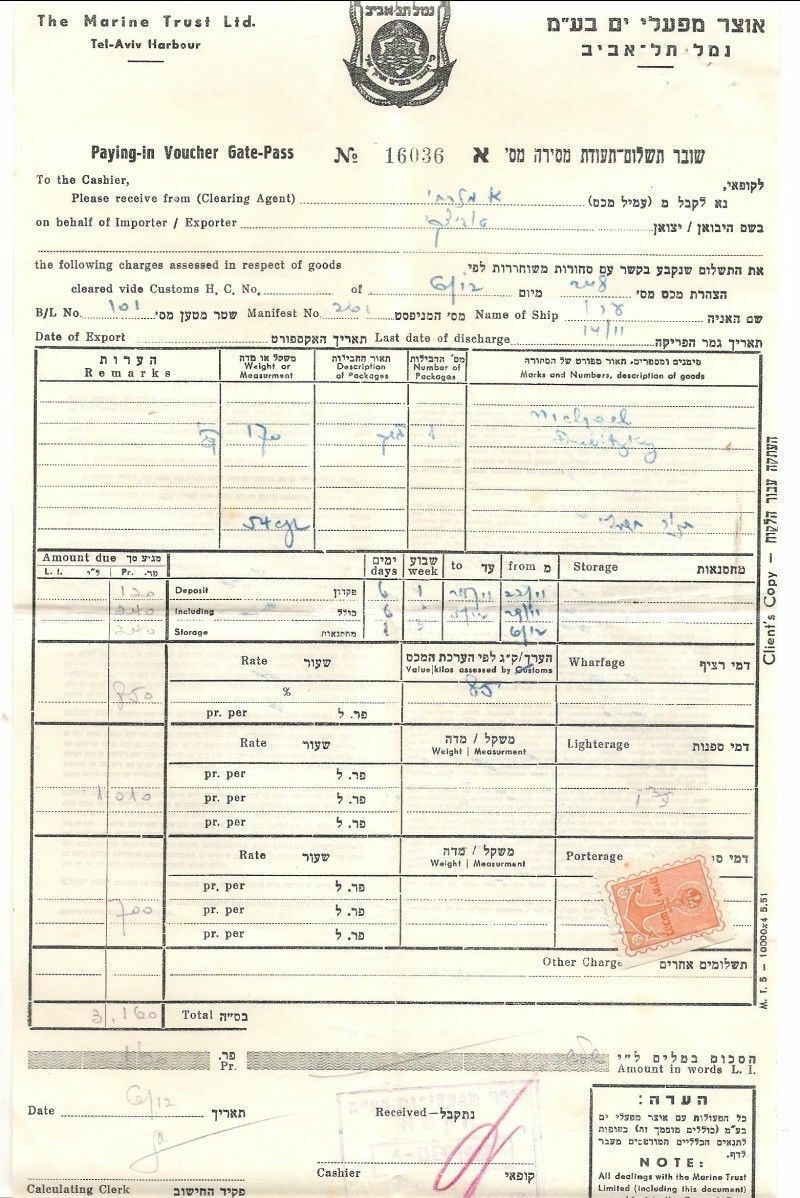 The Marine Trust Ltd. אוצר מפעלי ים בע״מ
Tel-Aviv Harbour נמל תל־אביב
נמל תל אביב
Paying-in Voucher Gate-Pass № 16036 שובר תשלום־תעודת מסירה מס׳ א
To the Cashier, לקופאי,
Please receive from (Clearing Agent) נא לקבל מ (עמיל מכס)
on behalf of Importer / Exporter בשם היבואן / יצואן
the following charges assessed in respect of goods את התשלום שנקבע בקשר עם סחורות משוחררות לפי
cleared vide Customs H. C. No. of 6/12 מיום הצהרת מכס מס׳
B/L No. 101 שטר מטען מס׳ Manifest No 261 מס׳ המניפסט Name of Ship שם האניה
Date of Export תאריך האקספורט Last date of discharge 14/11 תאריך גמר הפריקה
הערות משקל או מדה תאור החבילות מס׳ החבילות סימנים ומספרים, תאור מפורט של הסחורה
Remarks Weight or Measurment Description of Packages Number of Packages Marks and Numbers, description of goods
170 1
Amount due מגיע סך ימים days שבוע week to עד from מ Storage מחסנאות
L. I. ל״י Pr. פר.
120 Deposit פקדון 6 1 22/11
240 Including כולל 6 29/11
240 Storage מחסנאות 1 6/12
Rate שעור הערך/ק״ג לפי הערכת המכס Wharfage דמי רציף
Value|kilos assessed by customs
850 % 85
pr. per פר. ל
Rate שעור משקל / מדה Lighterage דמי ספנות
Weight | Measurment
pr. per פר. ל
1 010 pr. per פר. ל
pr. per פר. ל
Rate שעור משקל / מדה Porterage דמי
Weight | Measurment
pr. per פר. ל
700 pr. per פר. ל
pr. per פר. ל
Other Charge תשלומים אחרים
3,160 Total בס״ה
160 פר. הסכום במלים ל״י
Pr. Amount in words L. I.
Date 6/12 תאריך Received—נתקבל
Cashier קופאי
Calculating Clerk פקיד החישוב
הערה:
כל הפעולות עם אוצר מפעלי ים
בע״מ (כוללים מוסמך זה) כפופות
לתנאים הכלליים המודפסים מעבר
לדף.
NOTE:
All dealings with the Marine Trust
Limited (including this document)
Client's Copy — העתקה עבור הלקוח
M. T. 5 — 10000x4 5.51